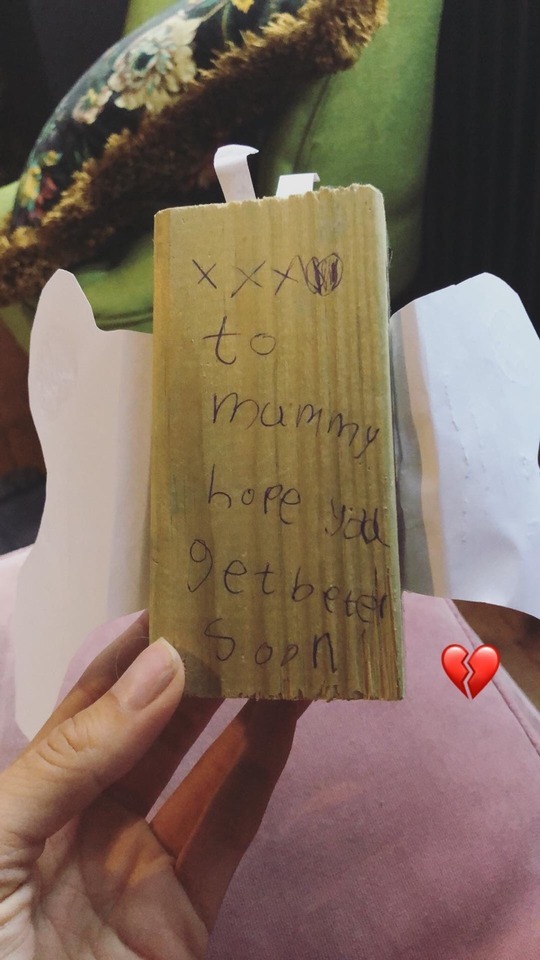 xxx
to
mummy
hope you
get beter
soon